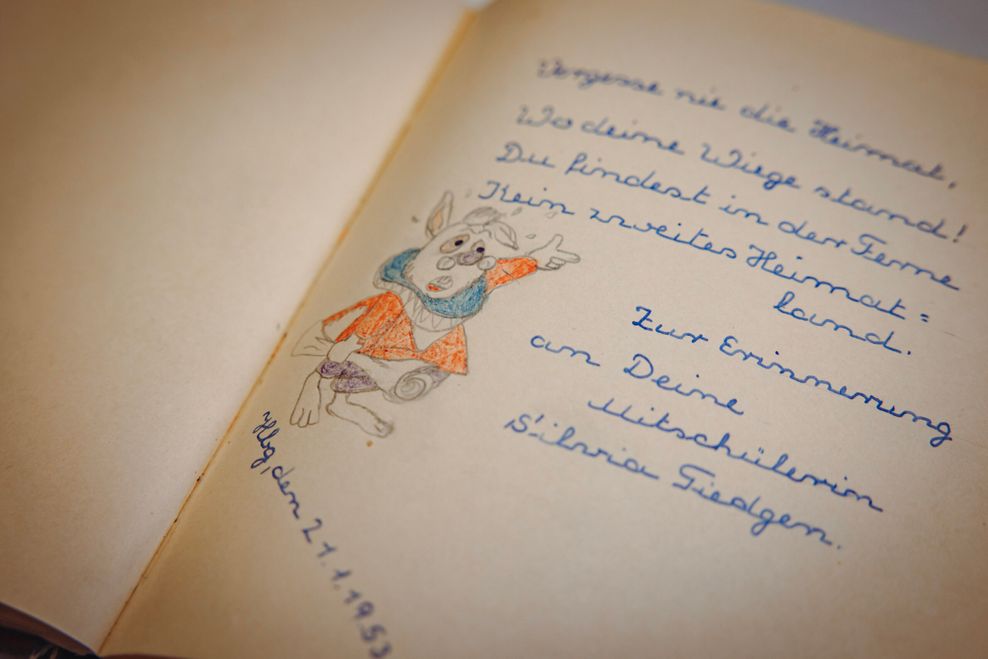 Vergesse nie die Heimat,
Wo deine Wiege stand!
Du findest in der Ferne
Kein zweites Heimat=
land.
Zur Erinnerung
an Deine
Mitschülerin
Silvia Tiedgen.
Hbg, den 21.1.1953